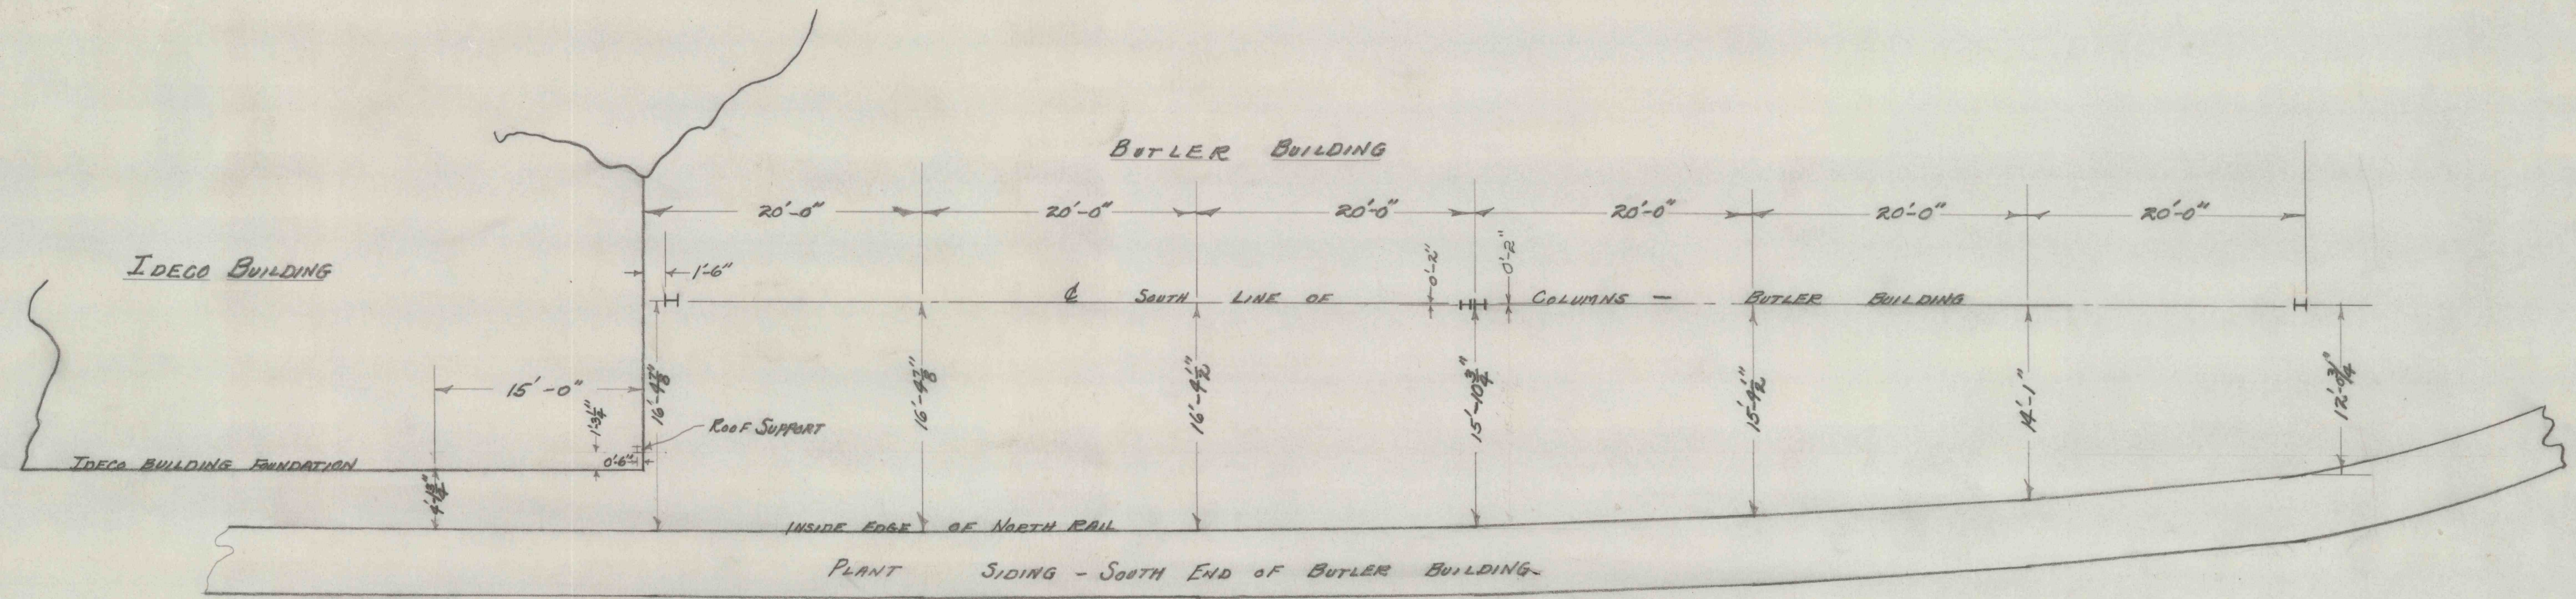 BUTLER BUILDING
20'-0" 20'-0" 20'-0" 20'-0" 20'-0" 20'-0"
IDECO BUILDING
1'-6"
0'-2" 0'-2"
℄ SOUTH LINE OF COLUMNS - BUTLER BUILDING
15'-0"
1'-3 1/4"
16'-4 7/8" 16'-4 7/8" 16'-4 1/2" 15'-10 3/4" 15'-4 1/2" 14'-1" 12'-6 3/4"
ROOF SUPPORT
IDECO BUILDING FOUNDATION
0'-6"
INSIDE EDGE OF NORTH RAIL
PLANT SIDING - SOUTH END OF BUTLER BUILDING